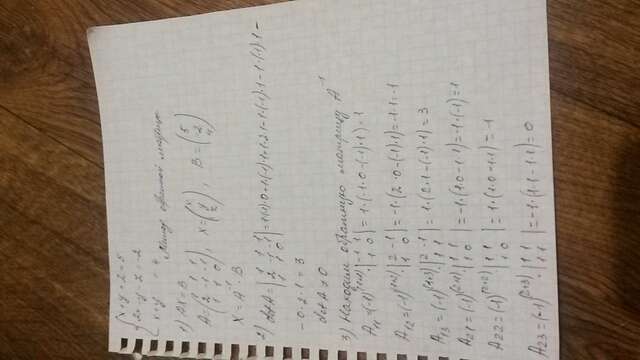 x+y+z=5
2x-y-z=-2
x+y=4
Метод обратной матрицы
1) AX=B
A=(1 1 1; 2 -1 -1; 1 1 0), X=(x y z), B=(5 -2 4)
X=A⁻¹·B
2) detA=|1 1 1; 2 -1 -1; 1 1 0|=1·(-1)·0+1·(-1)·1+1·2·1-1·(-1)·1-1·(-1)·1-
-0·2·1=3
detA≠0
3) Находим обратную матрицу A⁻¹
A₁₁=(-1)⁽¹⁺¹⁾·|-1 -1; 1 0|=1·(-1·0-(-1)·1)=1
A₁₂=(-1)⁽¹⁺²⁾·|2 -1; 1 0|=-1·(2·0-(-1)·1)=-1·1=-1
A₁₃=(-1)⁽¹⁺³⁾·|2 -1; 1 1|=1·(2·1-(-1)·1)=3
A₂₁=(-1)⁽²⁺¹⁾·|1 1; 1 0|=-1(1·0-1·1)=-1·(-1)=1
A22=(-1)⁽²⁺²⁾·|1 1; 1 0|=1·(1·0-1·1)=-1
A23=(-1)⁽²⁺³⁾·|1 1; 1 1|=-1·(1·1-1·1)=0